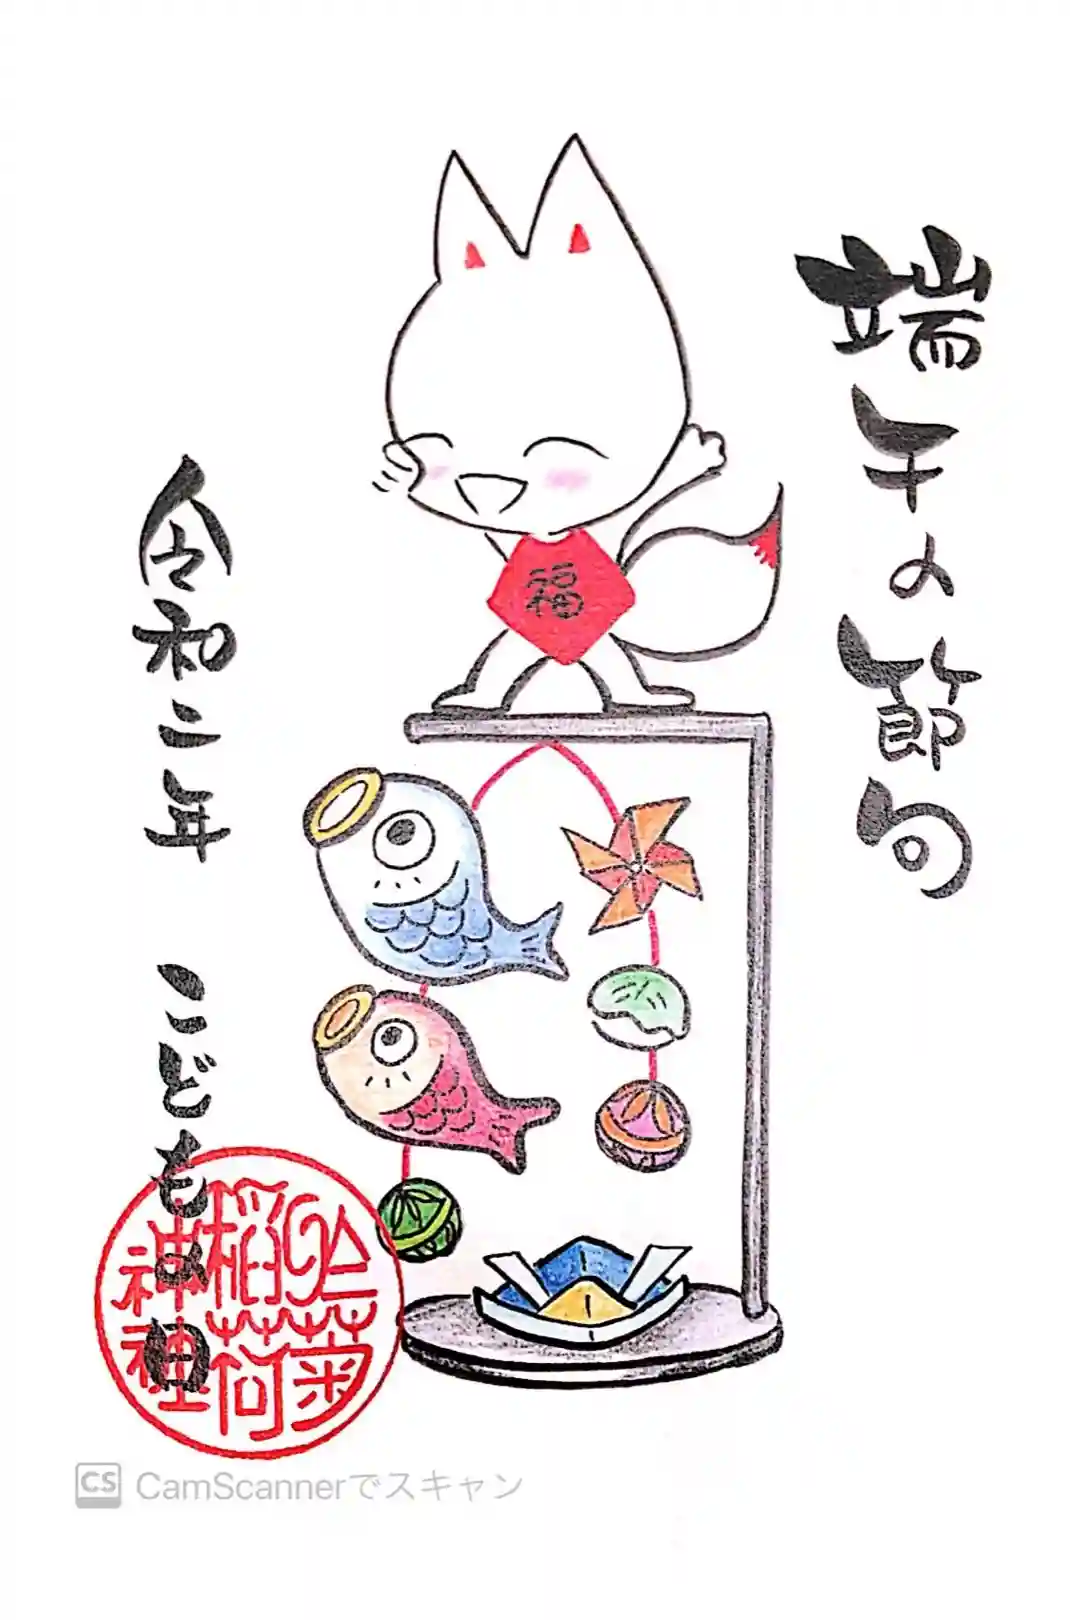 端午の節句
福
令和二年 こどもの日
於菊
稲荷
神社
CS CamScannerでスキャン